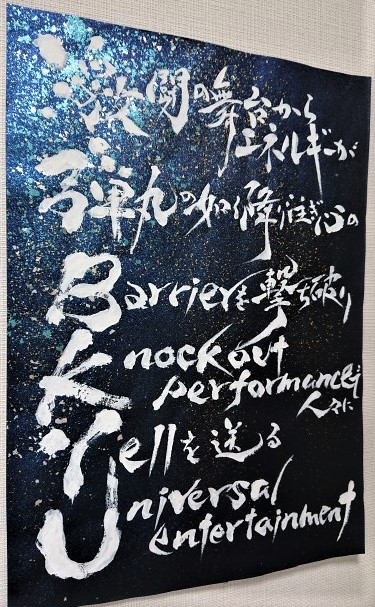 激闘の舞台から
エネルギーが
弾丸の如く降り注ぎ心の
Barrierを撃ち破り
Knockout
performanceで
人々に
Yellを送る
Universal
entertainment